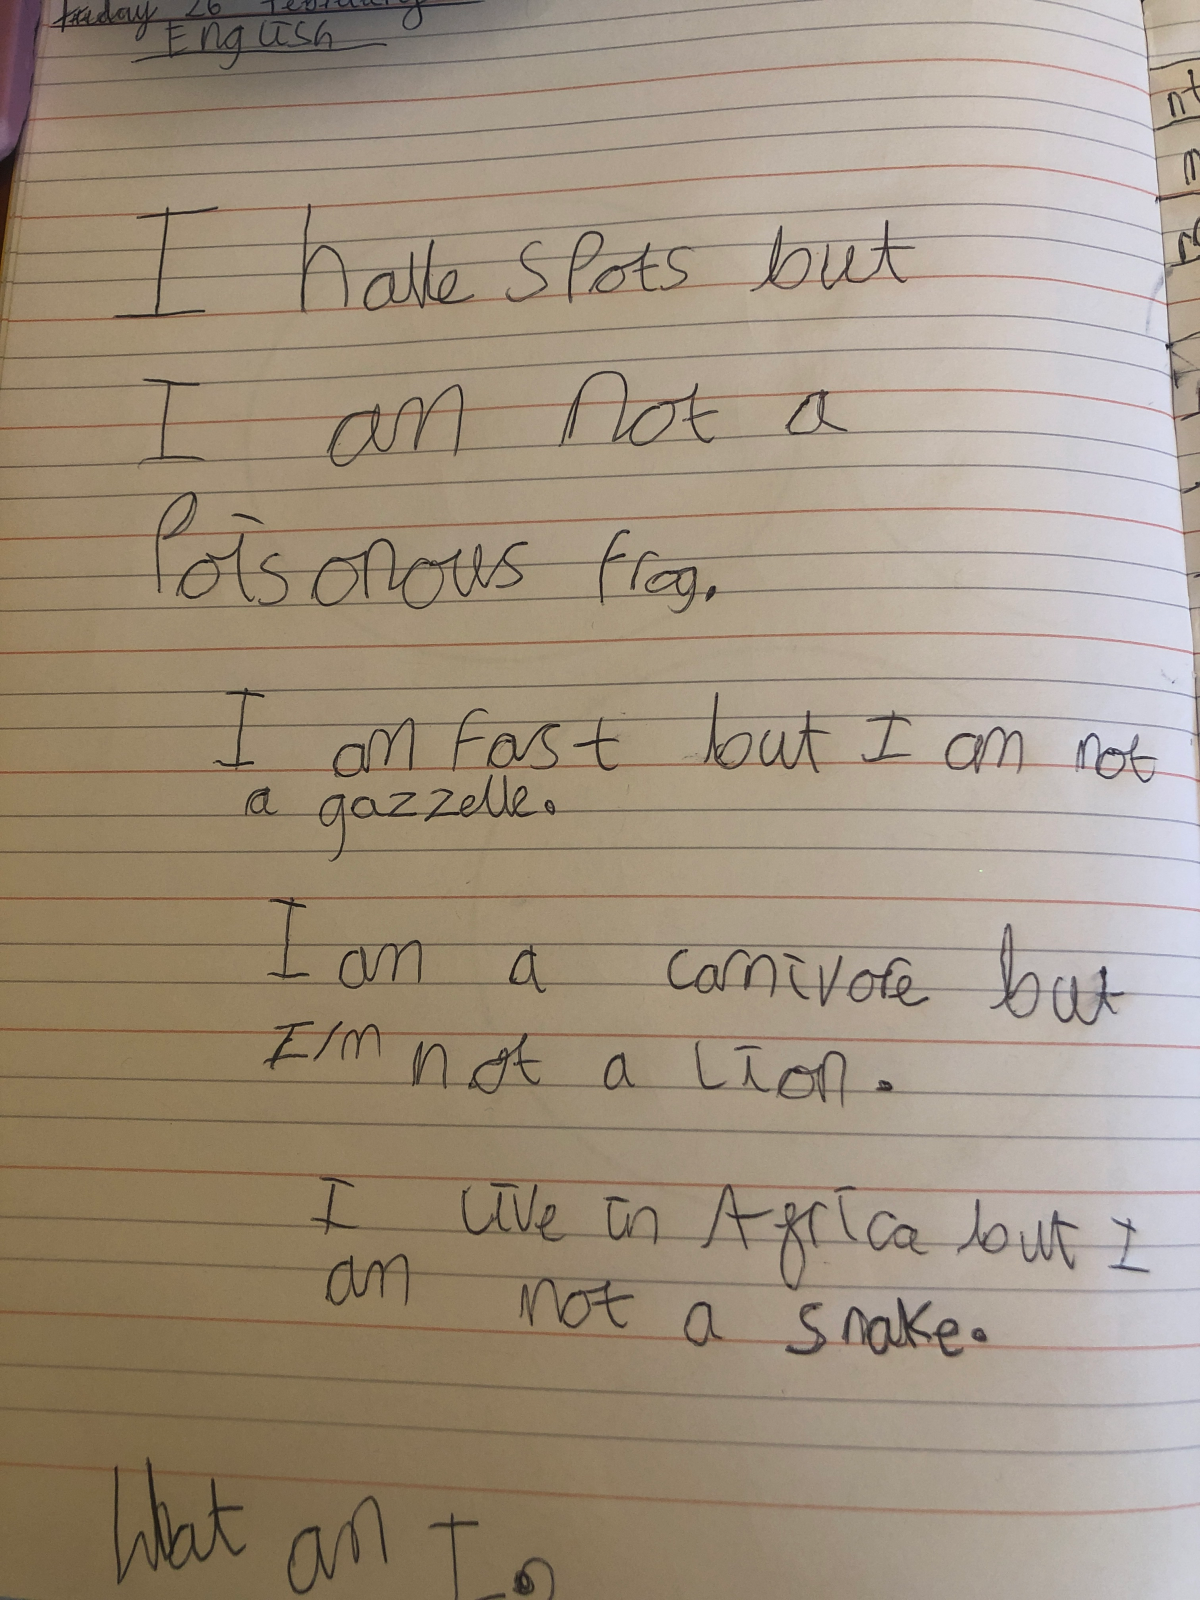 Friday 26 February
English
I have spots but
I am not a
Poisonous frog.
I am fast but I am not
a gazzelle.
I am a carnivore but
I'm not a Lion.
I Live in Africa but I
am not a snake.
What am I